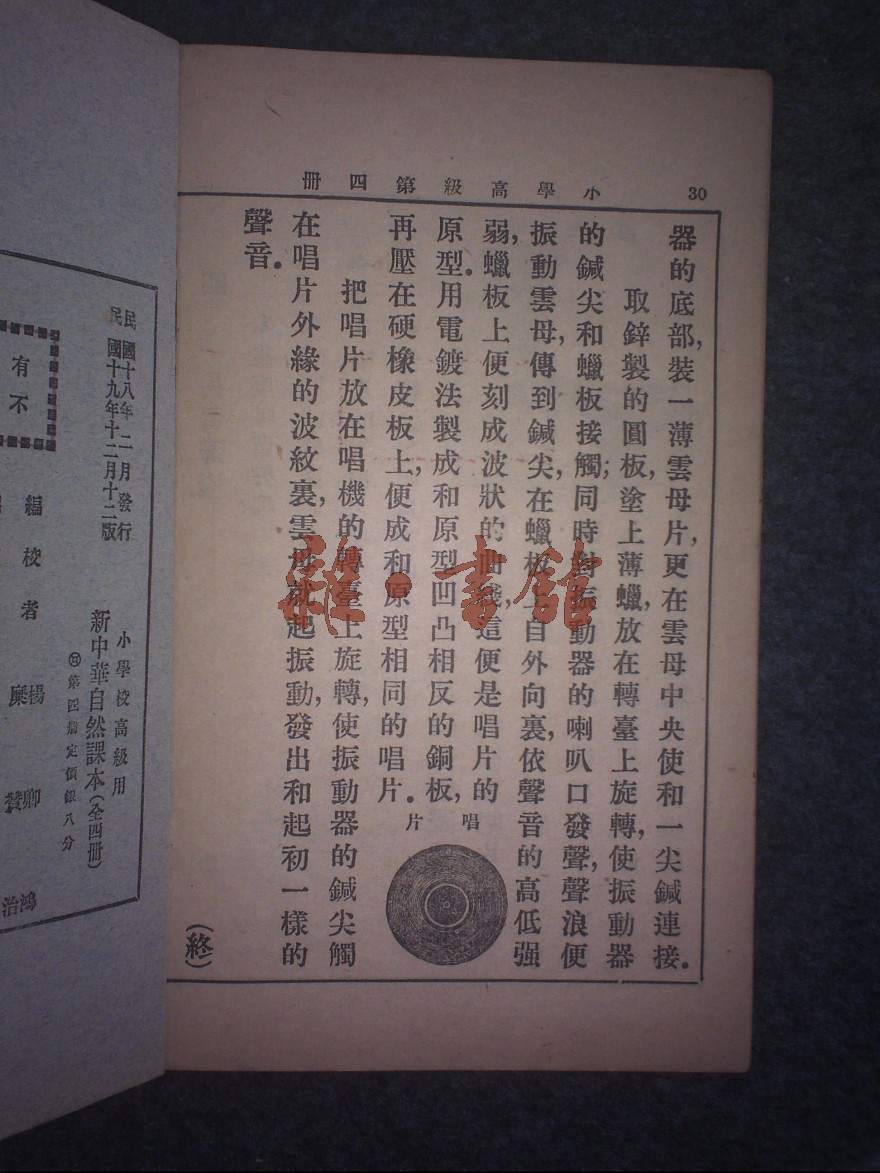 30
小學高級第四册
器的底部，裝一薄雲母片，更在雲母中央使和一尖鍼連接。
取鋅製的圓板，塗上薄蠟，放在轉臺上旋轉，使振動器
的鍼尖和蠟板接觸；同時對振動器的喇叭口發聲，聲浪便
振動雲母，傳到鍼尖，在蠟板上自外向裏，依聲音的高低强
弱，蠟板上便刻成波狀的曲綫，這便是唱片的
原型。用電鍍法製成和原型凹凸相反的銅板，
再壓在硬橡皮板上，便成和原型相同的唱片。
唱片
把唱片放在唱機的轉臺上旋轉，使振動器的鍼尖觸
在唱片外緣的波紋裏，雲母就起振動，發出和起初一樣的
聲音。
（終）
民國十八年二月發行
民國十九年十二月十二版
小學校高級用
新中華自然課本（全四册）
第四册定價銀八分
有
不
編校者
楊卿鴻
糜贊治